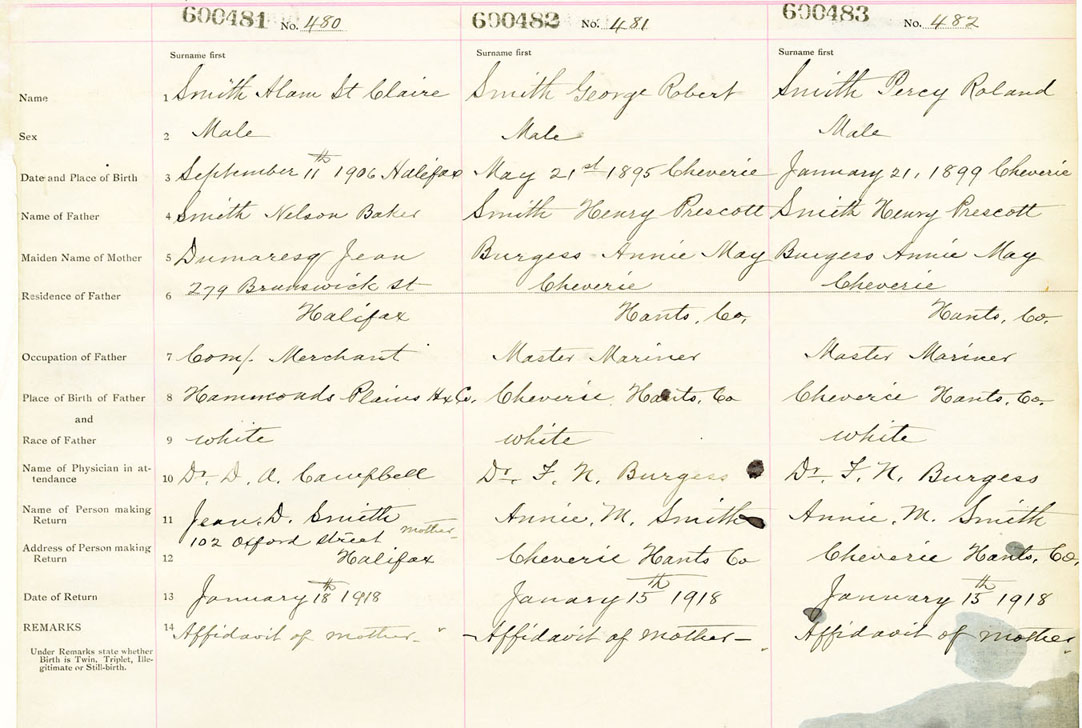 600481 No. 480 600482 No. 481 600483 No. 482
Surname first Surname first Surname first
Name 1 Smith Alam St Claire Smith George Robert Smith Percy Roland
Sex 2 Male Male Male
Date and Place of Birth 3 September 11th 1906 Halifax May 21st 1895 Cheverie January 21, 1899 Cheverie
Name of Father 4 Smith Nelson Baker Smith Henry Prescott Smith Henry Prescott
Maiden Name of Mother 5 Dumaresq Jean Burgess Annie May Burgess Annie May
Residence of Father 6 279 Brunswick St Cheverie Cheverie
Halifax Hants, Co, Hants, Co.
Occupation of Father 7 Com/. Merchant Master Mariner Master Mariner
Place of Birth of Father 8 Hammonds Plains Hx Co. Cheverie, Hants, Co Cheverie Hants, Co.
and
Race of Father 9 white white white
Name of Physician in at- 10 Dr. D. A. Campbell Dr. F. N. Burgess Dr. F. N. Burgess
tendance
Name of Person making 11 Jean. D. Smith mother Annie. M. Smith Annie. M. Smith
Return
102 Oxford Street
Address of Person making 12 Halifax Cheverie Hants Co Cheverie Hants, Co,
Return
Date of Return 13 January 18th 1918 Janary 15th 1918 January 15th 1918
REMARKS 14 Affidavit of mother Affidavit of mother Affidavit of mother
Under Remarks state whether
Birth is Twin, Triplet, Ille-
gitimate or Still-birth.